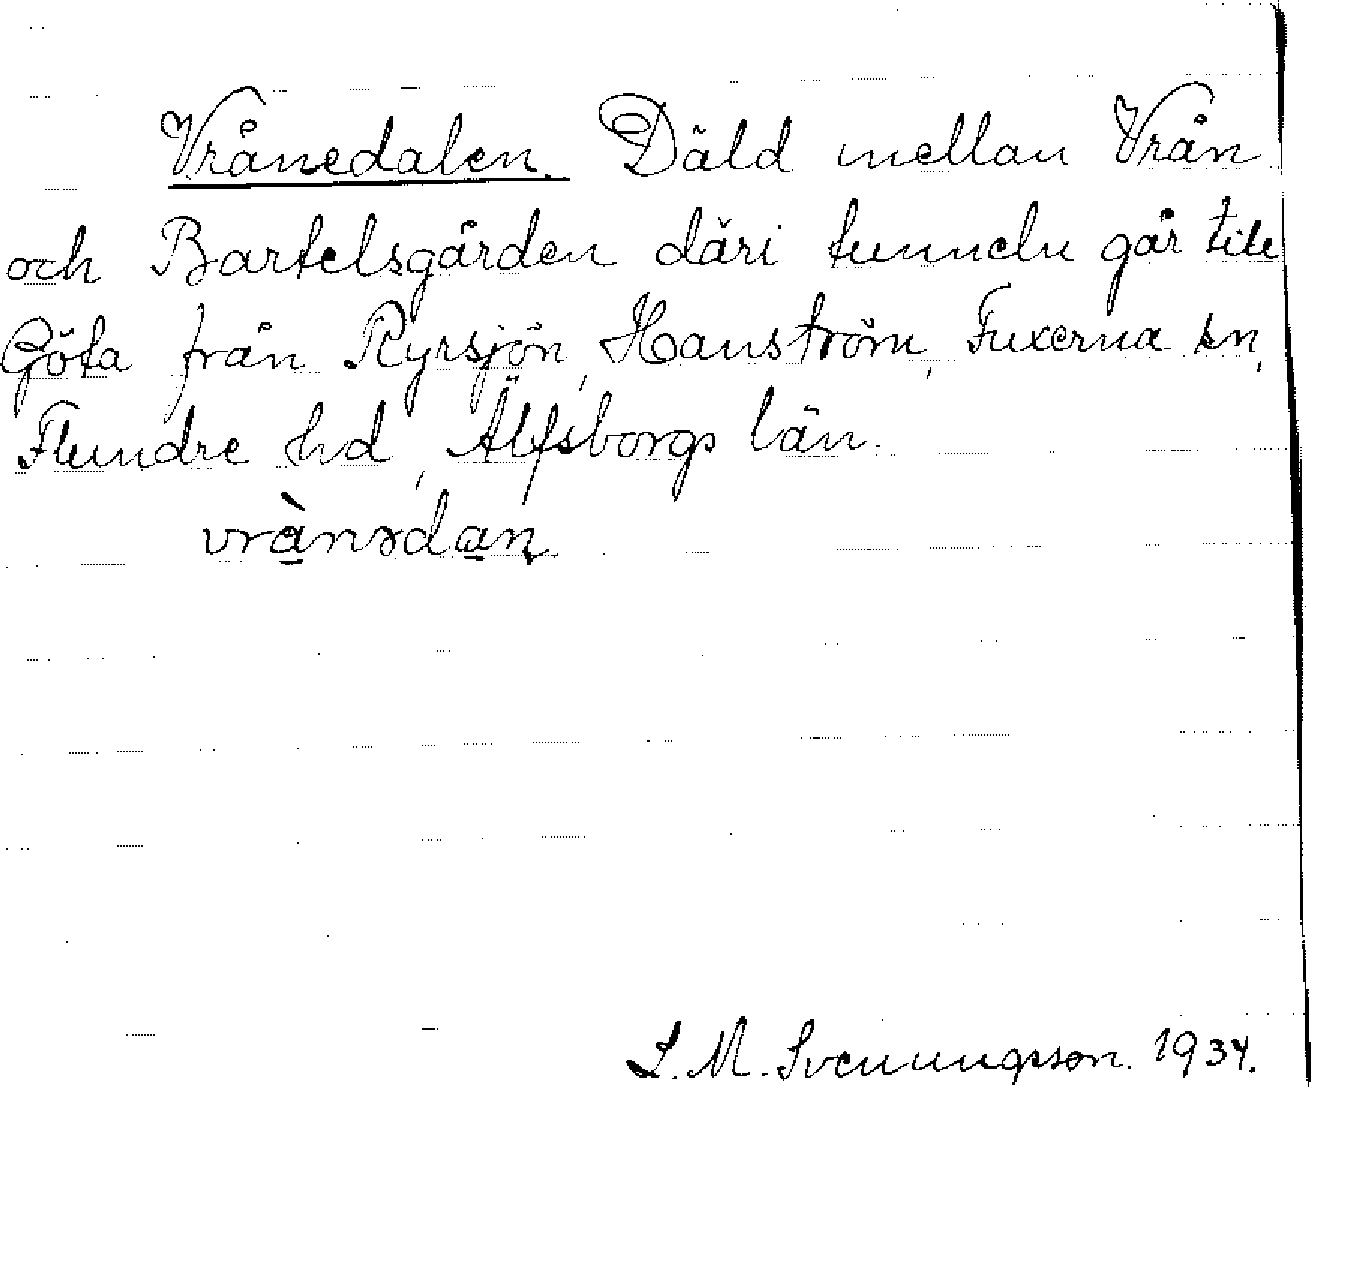 Vrånedalen. Däld mellan Vrån
och Bartelsgården däri tunneln går till
Göta från Ryrsjön, Hanström, Fuxerna sn,
Flundre hd, Älfsborgs län.
vrànədan
L. M. Svenungsson. 1934.